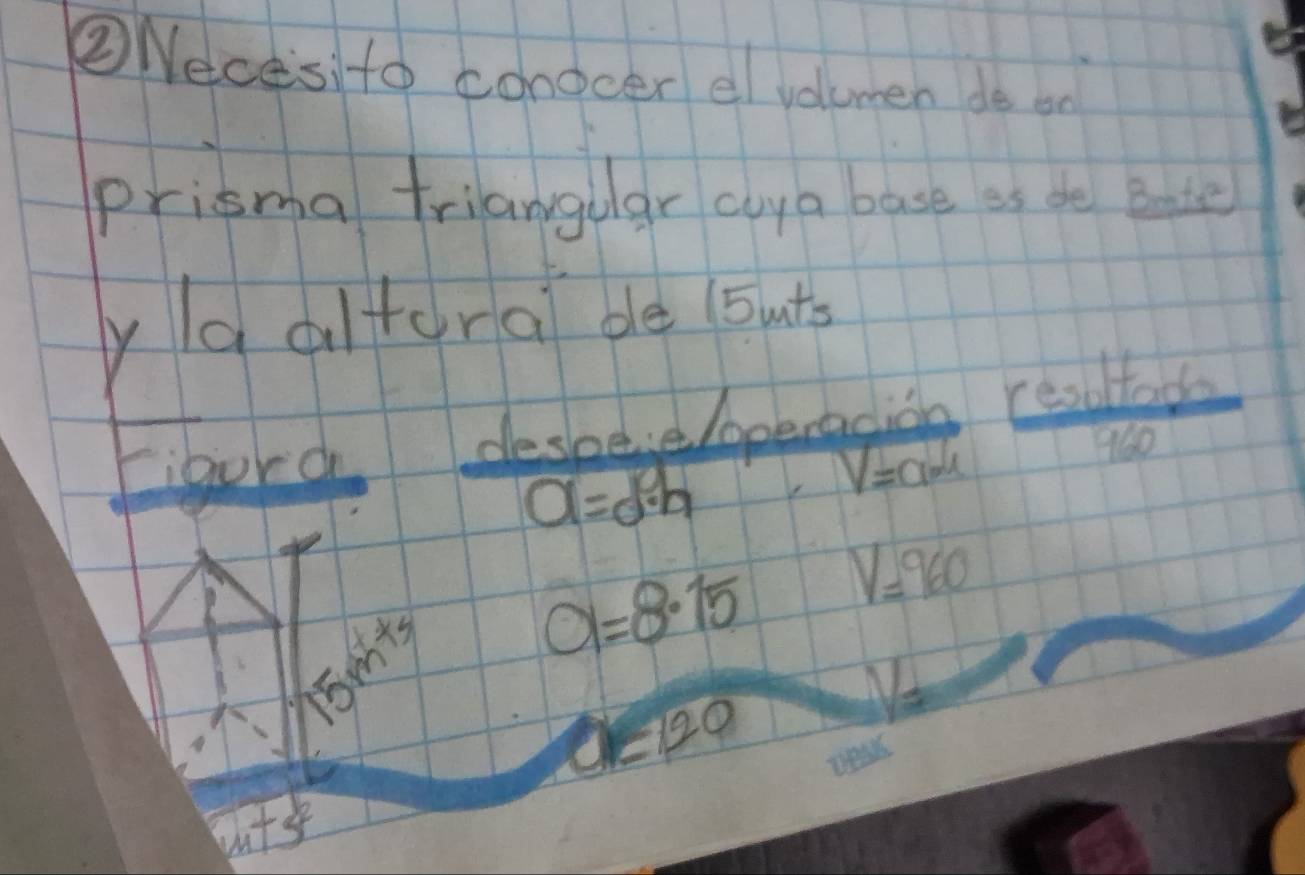 ② Necesito conocer el volumen de un
prisma triangular cuya base es de 8mts²
y la altura de 15mts
Figura
despeje/operación
resultado
960
a=b·h
V=a·h
a=8·15
V=960
a=120
V=
15mts
mts²